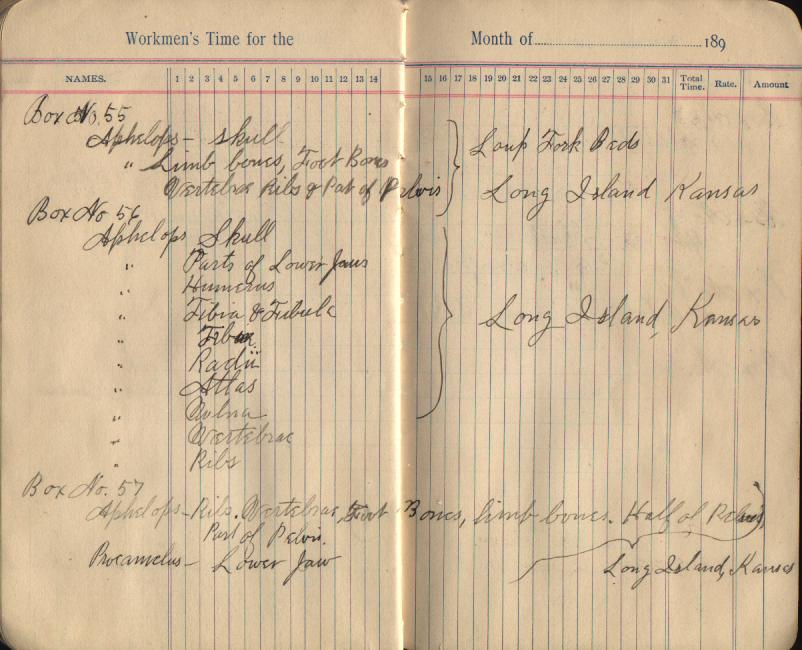 Workmen's Time for the Month of 189
NAMES. 1 2 3 4 5 6 7 8 9 10 11 12 13 14 15 16 17 18 19 20 21 22 23 24 25 26 27 28 29 30 31 Total Time. Rate. Amount
Box No. 55
Aphelops - skull
" Limb bones, Foot Bones
Loup Fork Beds
Vertebrae Ribs & Part of Pelvis
Long Island Kansas
Box No 56
Aphelops Skull
" Parts of Lower Jaws
" Humerus
" Tibia & Fibula
Long Island, Kansas
"
" Radii
" Atlas
"
" Vertebrae
" Ribs
Box No. 57
Aphelops - Ribs. Vertebrae, Foot Bones, limb bones. Half of Pelvis,
Part of Pelvis.
Procamelus - Lower Jaw
Long Island, Kansas